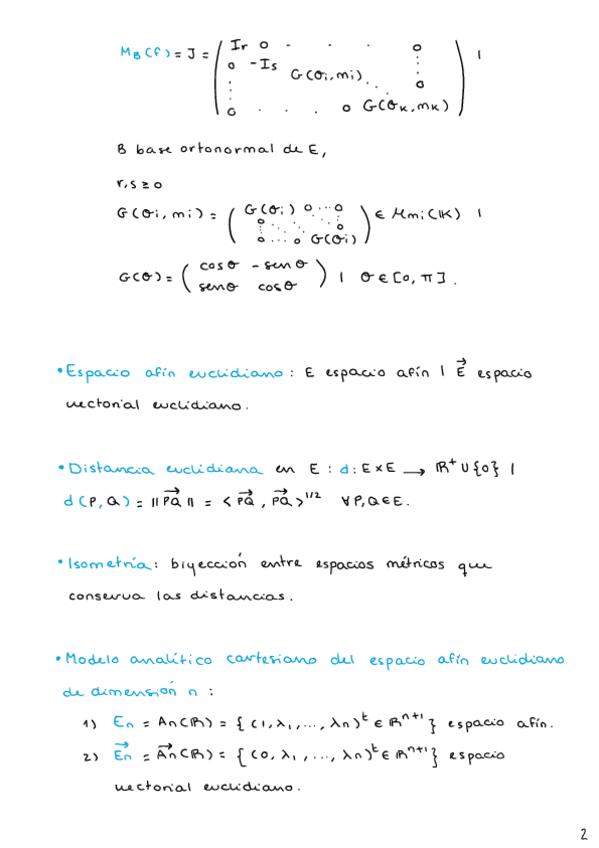 M_B(f) = J = ( Ir 0 · · · 0 |
0 -Is ⋮
⋮ G(θi, mi) ⋱ 0
0 · · · 0 G(θk, mk) )
B base ortonormal de E,
r,s ≥ 0
G(θi, mi) = ( G(θi) 0 ··· 0 ) ∈ Mmi(K) |
0 ⋱ ⋱ 0
0 ··· 0 G(θi)
G(θ) = ( cosθ -senθ ) | θ ∈ [0, π].
senθ cosθ
• Espacio afín euclidiano: E espacio afín | E⃗ espacio
vectorial euclidiano.
• Distancia euclidiana en E : d: E×E → ℝ⁺ ∪ {0} |
d(P, Q) = ||PQ⃗|| = <PQ⃗, PQ⃗>^1/2 ∀P,Q∈E.
• Isometría: biyección entre espacios métricos que
conserva las distancias.
• Modelo analítico cartesiano del espacio afín euclidiano
de dimensión n :
1) En = An(ℝ) = { (1, λ1, ..., λn)^t ∈ ℝ^n+1 } espacio afín.
2) E⃗n = A⃗n(ℝ) = { (0, λ1, ..., λn)^t ∈ ℝ^n+1 } espacio
vectorial euclidiano.
2